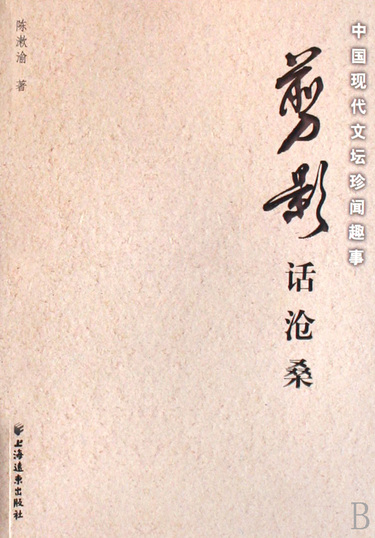 中国现代文坛珍闻趣事
剪影
话沧桑
陈漱渝 著
上海远东出版社
B